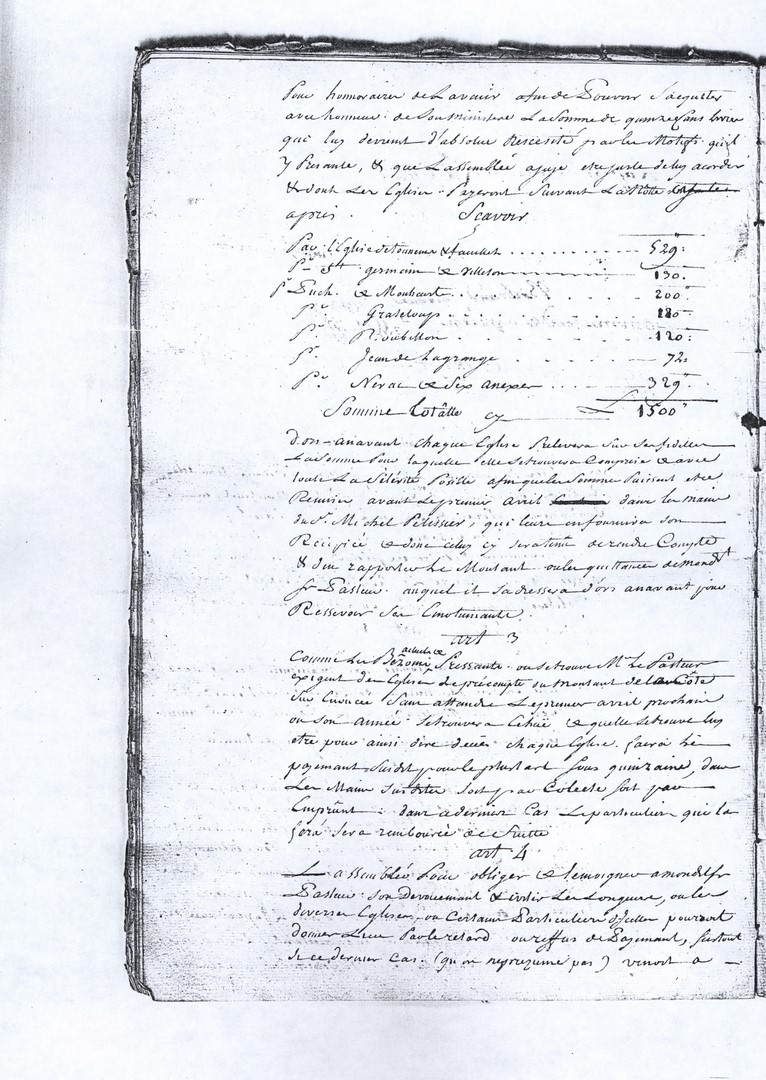 Pour honnoraires de L avenir afin de Pouvoir S'aquiter
avec honneur de Son Ministere La Somme de quinze Cens livres
qui luy devient d'absolue Nescesité par les Motifs qu'il
y Presante, & que L assemblée a juge etre juste de luy acorder
& dont Les Eglises Payeront Suivant La Notte
apres . Scavoir
Par l'Eglise de Tonneins & fauillet .......... 529:
Pr St germain & Villeton 130.
Pr Puch. & Monheurt .. 200"
Pr Grateloup . 120
Pr Roubillon . 120:
Pr Jean de Lagrange . 72:
Pr Nerac & Six anexes ... 329"
Somme totâlle cy 1500"
D'ors-anavant chaque Eglise Prelevera Sur Ses fidelles
La Somme Pour laquelle elle Se trouvera Comprise & avec
toute La Célérité Posible afin que les Somme Puissent etre
Remises avant Le premier avril dans les mains
du Sr. Michel Pelissier, qui leurs en fournira Son
Recipicé & donc celuy cy sera tenu de rendre Compte
& d'en rapporter Le Montant ou les quittances de mond
Sr Pasteur auquel il S'adressera d'ors anavant pour
Ressevoir Ses Emoluments
art 3
Comme Les Bezoins actuels & Pressants ou Se trouve Mr Le Pasteur
exigent des Eglises de précompte du montant de la Côte
Sus Enoncée Sans attandre Le premier avril prochain
ou Son année Se trouvera Echüe & quelle Se trouve luy
etre pour ainsi dire deües chaque Eglise faira Le
payemant Susdit pour le plus tart Sous quinzaine, dans
Les Mains Susdites Soit par Colecte Soit par
Emprünt : dans ce dernier Cas Le particulier qui la
fera Sera rembourcé de Suitte
art 4
L assemblée Pour obliger & temoigner a mondit Sr
Pasteur Son Devouemant & eviter Les Longueurs, ou les
diverses Eglises, ou Certains Particuliers d'Jcelles pourroit
donner Lieu Par le retard ou reffus de Payemant, Surtout
Si ce dernier Cas (qu'on ne prezume pas) venoit a